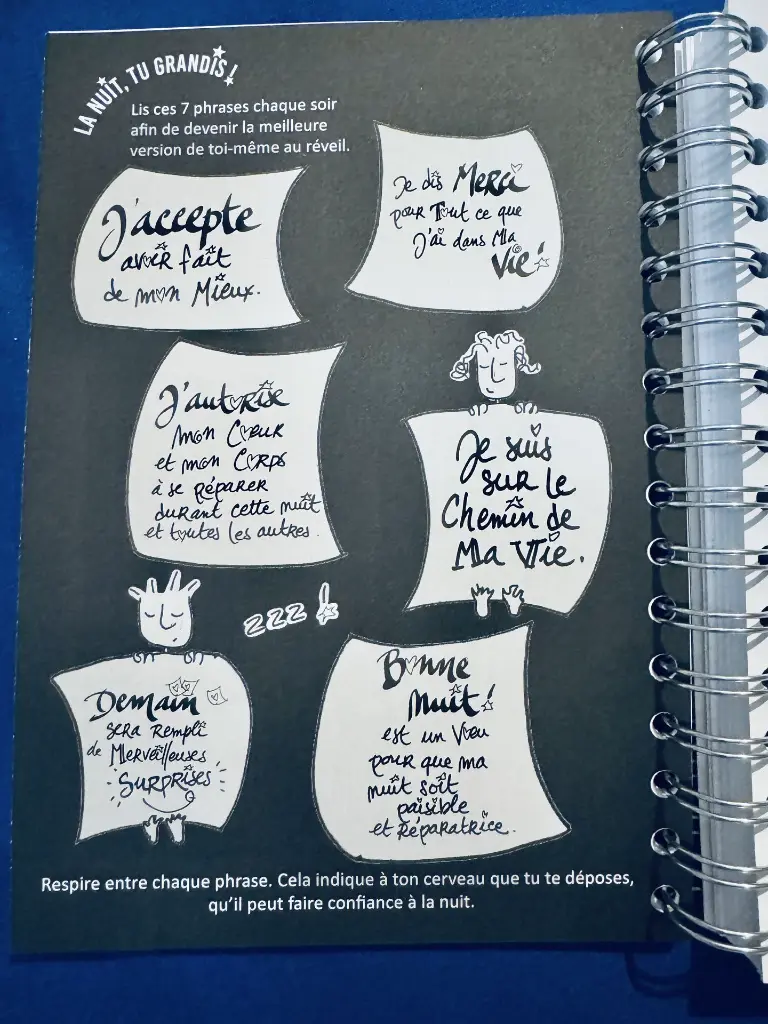 LA NUIT, TU GRANDIS!
Lis ces 7 phrases chaque soir
afin de devenir la meilleure
version de toi-même au réveil.
J'accepte
avoir fait
de mon Mieux.
Je dis Merci
pour Tout ce que
j'ai dans Ma
Vie!
J'autorise
mon Cœur
et mon Corps
à se réparer
durant cette nuit
et toutes les autres.
Je suis
sur le
Chemin de
Ma Vie.
zzz!
Demain
sera rempli
de Merveilleuses
SURPRISES
Bonne
nuit!
est un Vœu
pour que ma
nuit soit
paisible
et réparatrice.
Respire entre chaque phrase. Cela indique à ton cerveau que tu te déposes,
qu'il peut faire confiance à la nuit.